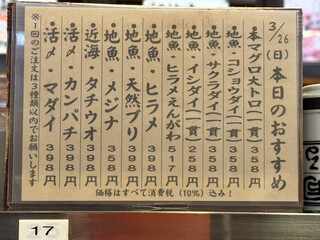 3/26(日)本日のおすすめ
本マグロ大トロ(一貫)358円
地魚・コショウダイ(一貫)358円
地魚・サクラダイ(一貫)358円
地魚・イシダイ(一貫)258円
地魚・ヒラメえんがわ517円
地魚・ヒラメ398円
地魚・天然ブリ398円
地魚・メジナ358円
近海・タチウオ398円
活〆・カンパチ398円
活〆・マダイ398円
※1回のご注文は3種類以内でお願いします
価格はすべて消費税(10%)込み!
17